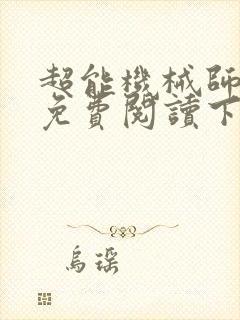 超能機械師
免費閱讀下
烏琛